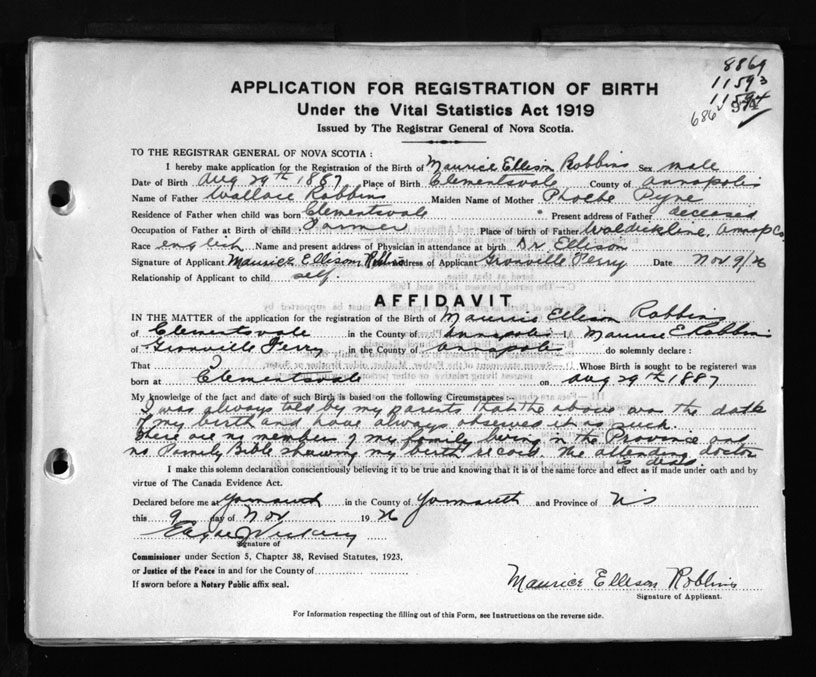 8869
11593
APPLICATION FOR REGISTRATION OF BIRTH
Under the Vital Statistics Act 1919
686
Issued by The Registrar General of Nova Scotia.
TO THE REGISTRAR GENERAL OF NOVA SCOTIA :
I hereby make application for the Registration of the Birth of Maurice Ellison Robbins Sex male
Date of Birth Aug 29th 1887 Place of Birth Clementsvale County of Annapolis
Name of Father Wallace Robbins Maiden Name of Mother Phoebe Pyne
Residence of Father when child was born Clementsvale Present address of Father deceased
Occupation of Father at Birth of child Farmer Place of birth of Father Waldeck Line, Annap Co
Race english Name and present address of Physician in attendance at birth Dr. Ellison
Signature of Applicant Maurice Ellison Robbins address of Applicant Granville Ferry Date Nov 9/26
Relationship of Applicant to child self.
AFFIDAVIT
IN THE MATTER of the application for the registration of the Birth of Maurice Ellison Robbins
of Clementsvale in the County of Annapolis I Maurice E Robbins
of Granville Ferry in the County of Annapolis do solemnly declare :
That Whose Birth is sought to be registered was
born at Clementsvale on Aug 29th 1887
My knowledge of the fact and date of such Birth is based on the following Circumstances :-
I was always told by my parents that the above was the date
of my birth and have always observed it as such.
There are no members of my family living in the Province and
no Family Bible showing my birth record. The attending doctor
is dead.
I make this solemn declaration conscientiously believing it to be true and knowing that it is of the same force and effect as if made under oath and by
virtue of The Canada Evidence Act.
Declared before me at Yarmouth in the County of Yarmouth and Province of NS
this 9 day of Nov 1926
Signature of
Commissioner under Section 5, Chapter 38, Revised Statutes, 1923.
or Justice of the Peace in and for the County of
If sworn before a Notary Public affix seal.
Maurice Ellison Robbins
Signature of Applicant.
For Information respecting the filling out of this Form, see Instructions on the reverse side.